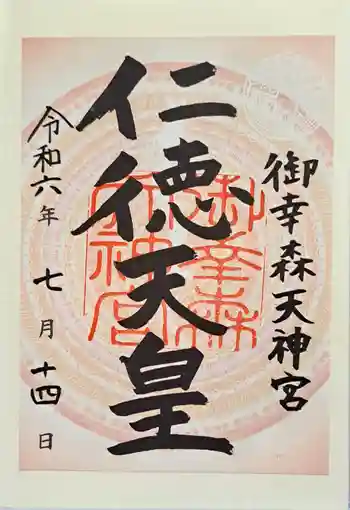 御幸森天神宮
仁徳天皇
令和六年 七月十四日
御幸森
天神宮